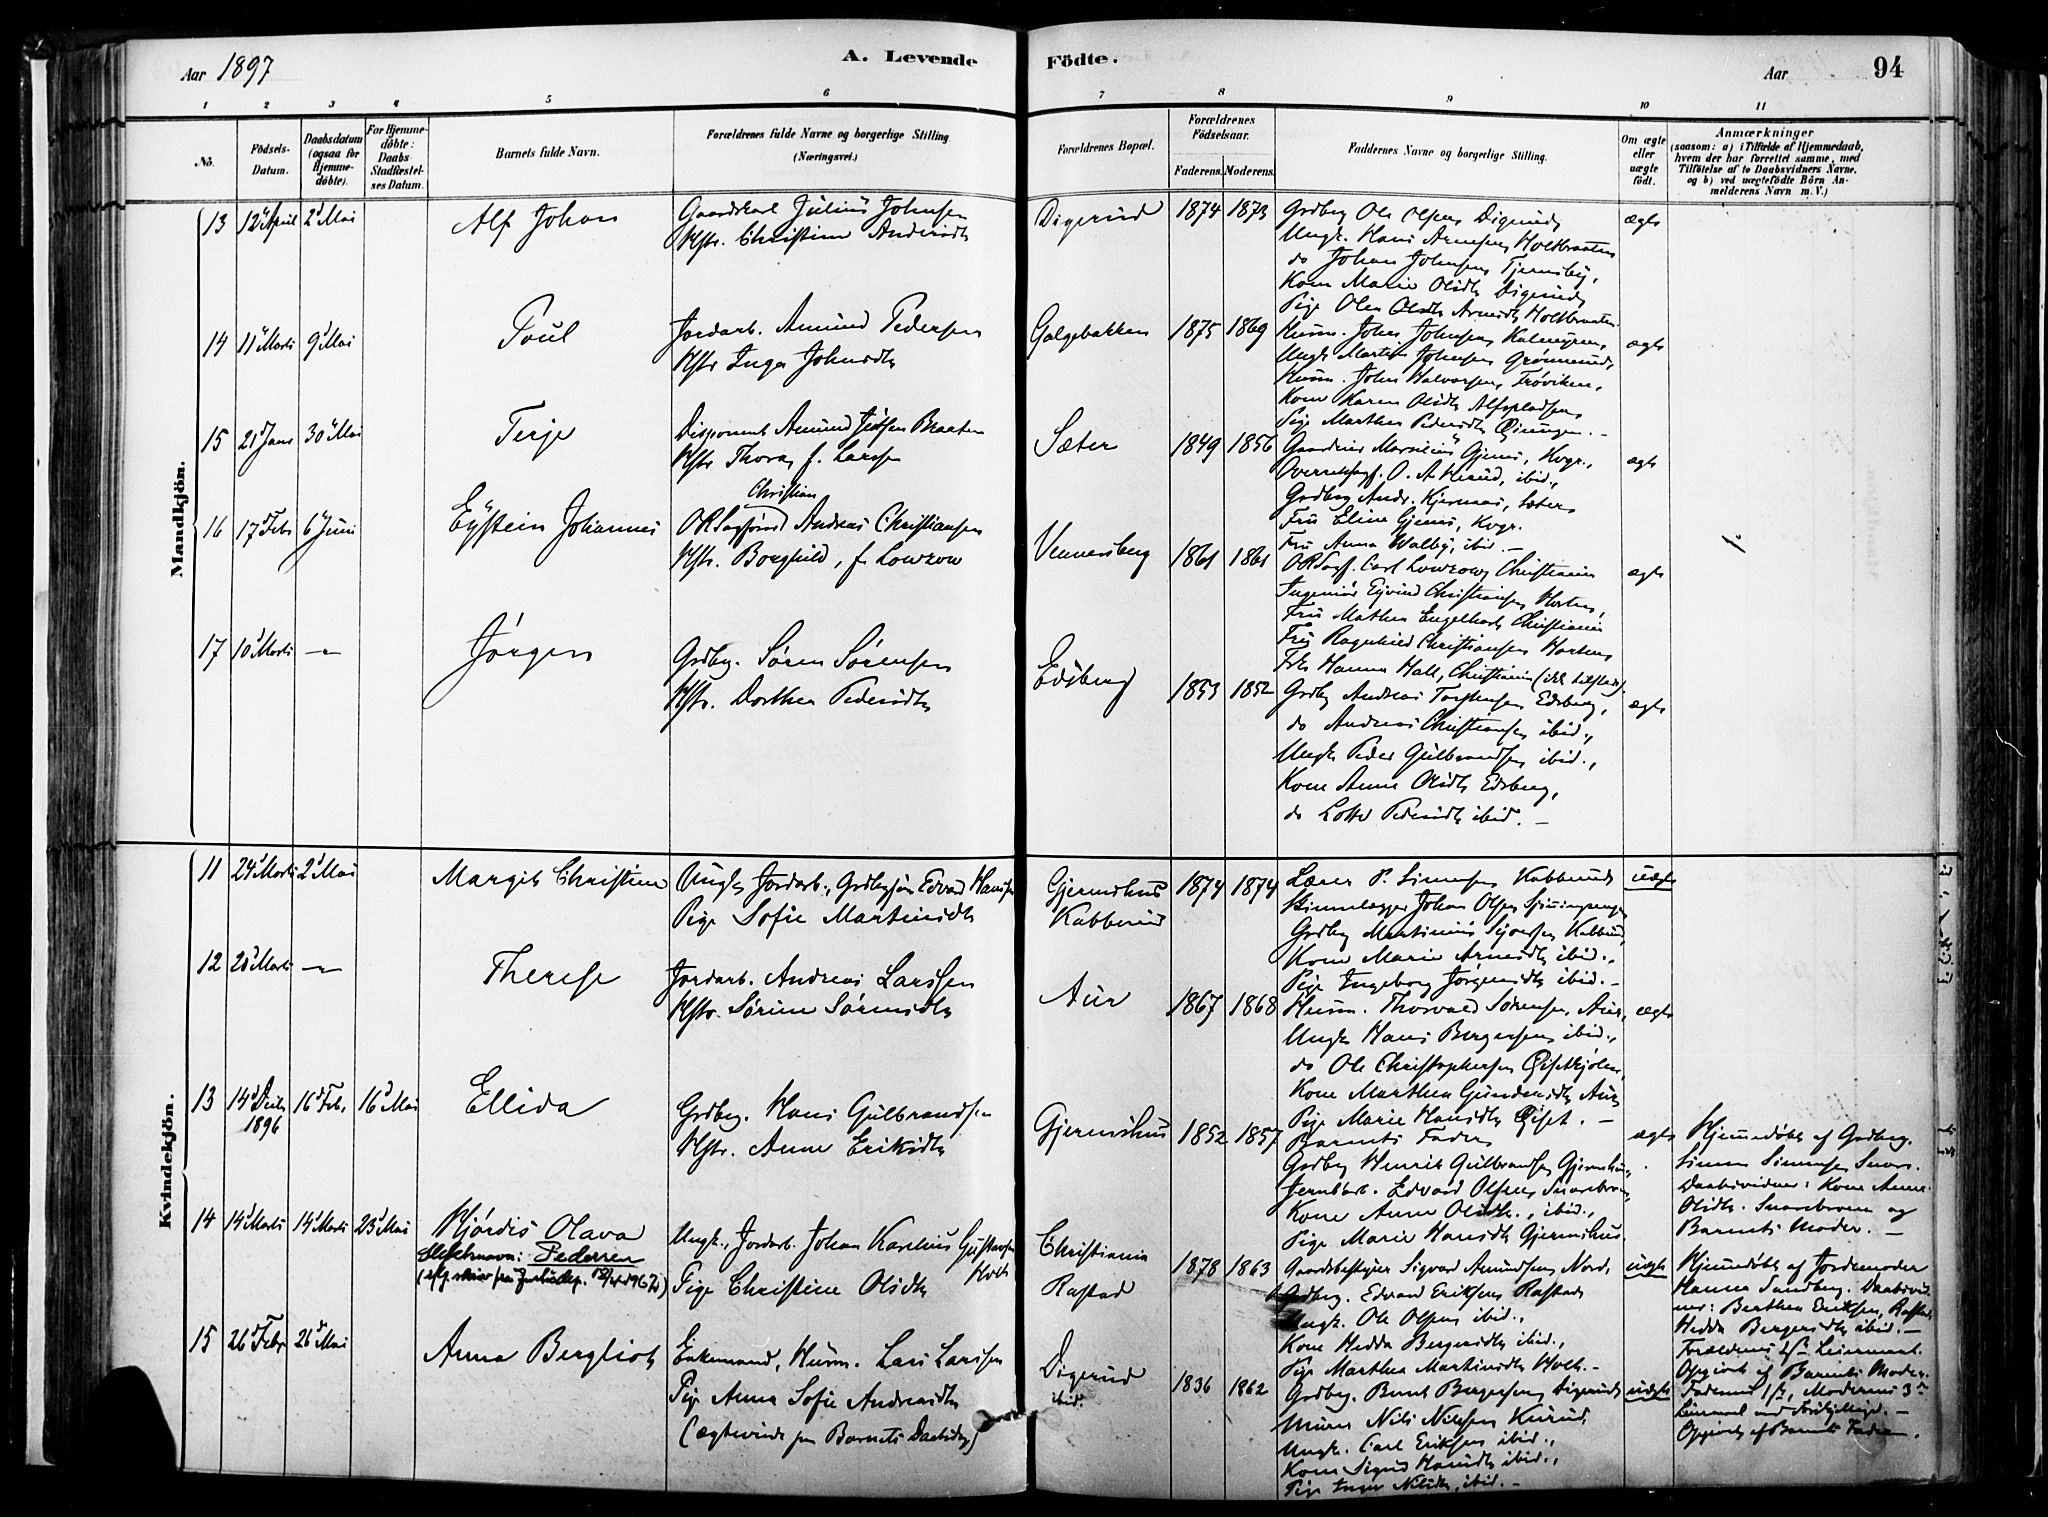 Aar 1897
A. Levende Födte.
Aar
94
1 2 3 4 5 6 7 8 9 10 11
No.
Födsels-Datum.
Daabsdatum (ogsaa for Hjemme-döbte).
For Hjemme-döbte: Daabs-Stadfæstel-ses Datum.
Barnets fulde Navn.
Forældrenes fulde Navne og borgerlige Stilling (Næringsvei.)
Forældrenes Bopæl.
Forældrenes Födselsaar.
Faderens. Moderens.
Faddernes Navne og borgerlige Stilling.
Om ægte eller uægte födt.
Anmærkninger
(saasom: a) i Tilfælde af Hjemmedaab,
hvem der har forrettet samme, med
Tilföielse af to Daabsvidners Navne,
og b) ved uægtefödte Börn An-
melderens Navn m. V.)
Mandkjön.
13 12 April 2 Mai
Alf Johan
Gaardskarl Julius Johnsen
Hstr. Christine Andersdtr
Digerud
1874 1873
Grdbrg Ole Olsen Digerud
Ungk. Hans Arnesen Holtbraaten
do Johan Johnsen Tjernsby,
Kone Marie Olsdtr Digerud
Pige Olea Arnesdtr Holtbraaten
ægte
14 11 Marts 9 Mai
Poul
Jordarb. Amund Pedersen
Hstr Inga Johnsdtr
Galgebakken
1875 1869
Husm. Johan Johnsen
Ungk Martin Johnsen Grønnerud,
Husm. John Halvorsen, Frøviken,
Kone Karen Olsdtr Alfspladsen
Pige Marthea Pedersdtr
ægte
15 21 Jans 30 Mai
Terje
Disponent Amund Braaten
Hstr Thora, f. Larsen
Sæter
1849 1856
Gjems, Kvgr.,
O. Akerud, ibid.,
Grdbrg Andr. Kjernaas, Sæter
Fru Eline Gjems, Kvgr.
Fru Anna Walby, ibid. –
ægte
16 17 Feb 6 Juni
Eystein Johannes
Christian
ORSagfører Andreas Christiansen
Hstr. Borghild, f. Lowzow
Vennersberg
1861 1861
ORSagf. Carl Lowzow, Christiania
Ingeniør Ejvind Christiansen Horten,
Fru Mathea Engelhart Christiania
Fru Ragnhild Christiansen Horten
Frk Hanna Hall, Christiania (ikke tilstede).
ægte
17 10 Marts –"–
Jørgen
Grdbrg. Søren Sørensen
Hstr. Dorthea Pedersdtr
Edsberg
1853 1852
Grdbrg Andreas Torstensen Edsberg,
do Andreas Christiansen ibid.,
Ungk Peder Gulbrandsen ibid.,
Kone Anne Olsdtr Edsberg,
do Lotte Pedersdtr ibid. –
ægte
Kvindekjön.
11 24 Marts 2 Mai
Margit Christine
Ungk, Jordarb., Edvard Hansen
Pige Sofie Martinsdtr
Gjermshus
Kabberud
1874 1874
Lærer P. Simensen Kabberud
Skindlægger Johan Olsen
Grdbrg Martinius Kabberud,
Kone Marie Arnesdtr ibid.,
Pige Ingeborg Jørgensdtr ibid. –
uægte
12 28 Marts –"–
Therese
Jordarb. Andreas Larssen
Hstr. Sørine Sørensdtr
Aur
1867 1868
Husm. Thorvald Sørensen, Aur,
Ungk Hans Bergersen ibid.,
do Ole Christophersen
Kone Marthea Gundersdtr Aur
Pige Marie Hansdtr –
ægte
13 14 Decbr 1896 16 Feb. 16 Mai
Ellida
Grdbrg. Hans Gulbrandsen
Hstr. Anne Eriksdtr
Gjermshus
1852 1857
Barnets Fader
Grdbrg Henrik Gulbrandsen Gjermshus,
Jernbarb. Edvard Olsen Snarebroen,
Kone Anne Olsdtr., ibid.,
Pige Marie Hansdtr Gjermshus.
ægte
Hjemmedøbt af Grdbrg.
Simen Simensen Snare.
Daabsvidner: Kone Anne
Olsdtr. Snarebroen og
Barnets Moder. –
14 14 Marts 14 Marts 23 Mai
Hjørdis Olava
Slektsnavn: Pedersen
Ungk., Jordarb. Johan Karelius Gustavsen
Holt
Pige Christine Olsdtr
Christiania
Rastad
1878 1863
Gaardsbestyrer Sigvard Amundsen, Nord,
Grdbrg. Edvard Eriksen Rastad
Ungk. Ole Olsen ibid.,
Kone Hedda Bergersdtr ibid.,
Pige Marthea Martinsdtr Holt. –
uægte
Hjemmedøbt af Jordemoder
Hanna Sundberg. Daabsvid
ner: Berthea Eriksen, Rastad,
Hedda Bergersdtr ibid. –
Forældrenes 1ste Leiermaal.
Opgivet af Barnets Moder.
15 26 Febr 26 Mai
Anna Bergliot
Enkemand, Husm. Lars Larssen
Pige Anna Sofie Andreasdtr
(ægteviede paa Barnets Daabsdag)
Digerud
ibid.
1836 1862
Grdbrg. Bernt Bergersen Digerud
Murer Nils Nilssen Kurud,
Ungk. Carl Eriksen ibid.,
Kone Sigrid Hansdtr ibid.,
Pige Inger Nilsdtr, ibid. –
uægte
Faderens 1ste, Moderens 3de
Leiermaal med Forskjellige. –
Opgivet af Barnets Fader.